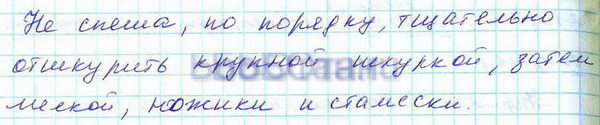 Не спеша, по порядку, тщательно
отшкурить крупной шкуркой, затем
мелкой, ножики и стамески.